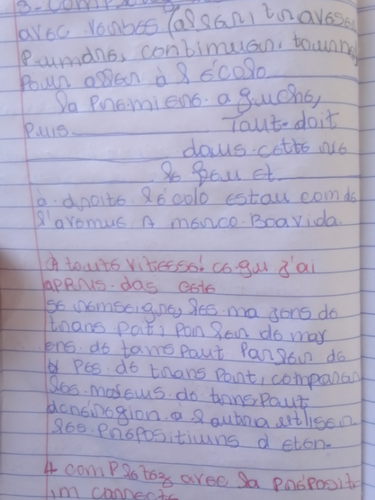 3. Comp
avec verbes (aller, traverser
prendre, continuer, tourner
pour aller à l'école
la premiere. a guche,
puis Tout-doit
dans cette rue
le feu et
à droite l'école estau com de
l'avemus A marco Bravida.
A toute vitesse! ce qu j'ai
appris das cete
se remseigne, les ma yens de
trans port; parler de moy
ens de tans paut Parler de
d pes. de trans port, comparer
les moyens de transpaut
de région a l'autre utiliser
les prépositiums d eten.
4 complétez avec la préposit
im correcte